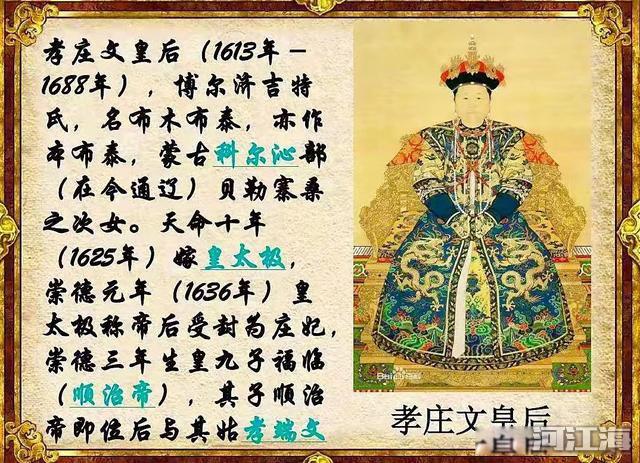 孝庄文皇后（1613年－
1688年），博尔济吉特
氏，名布木布泰，亦作
本布泰，蒙古科尔沁部
（在今通辽）贝勒寨桑
之次女。天命十年
（1625年）嫁皇太极，
崇德元年（1636年）皇
太极称帝后受封为庄妃，
崇德三年生皇九子福临
（顺治帝），其子顺治
帝即位后与其姑孝端文
Baidu百科
孝庄文皇后
河江海